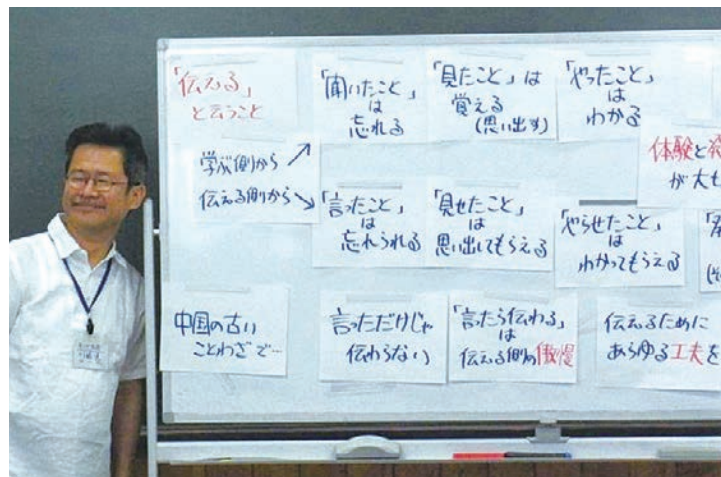 「伝える」
と云うこと
「聞いたこと」
は
忘れる
「見たこと」は
覚える
(思い出す)
「やったこと」
は
わかる
体験と
が大
学ぶ側から
伝える側から
「言ったこと」
は
忘れられる
「見せたこと」
は
思い出してもらえる
「やらせたこと」
は
わかってもらえる
中国の古い
ことわざで…
言っただけじゃ
伝わらない
「言ったら伝わる」
は
伝える側の傲慢
伝えるために
あらゆる工夫を